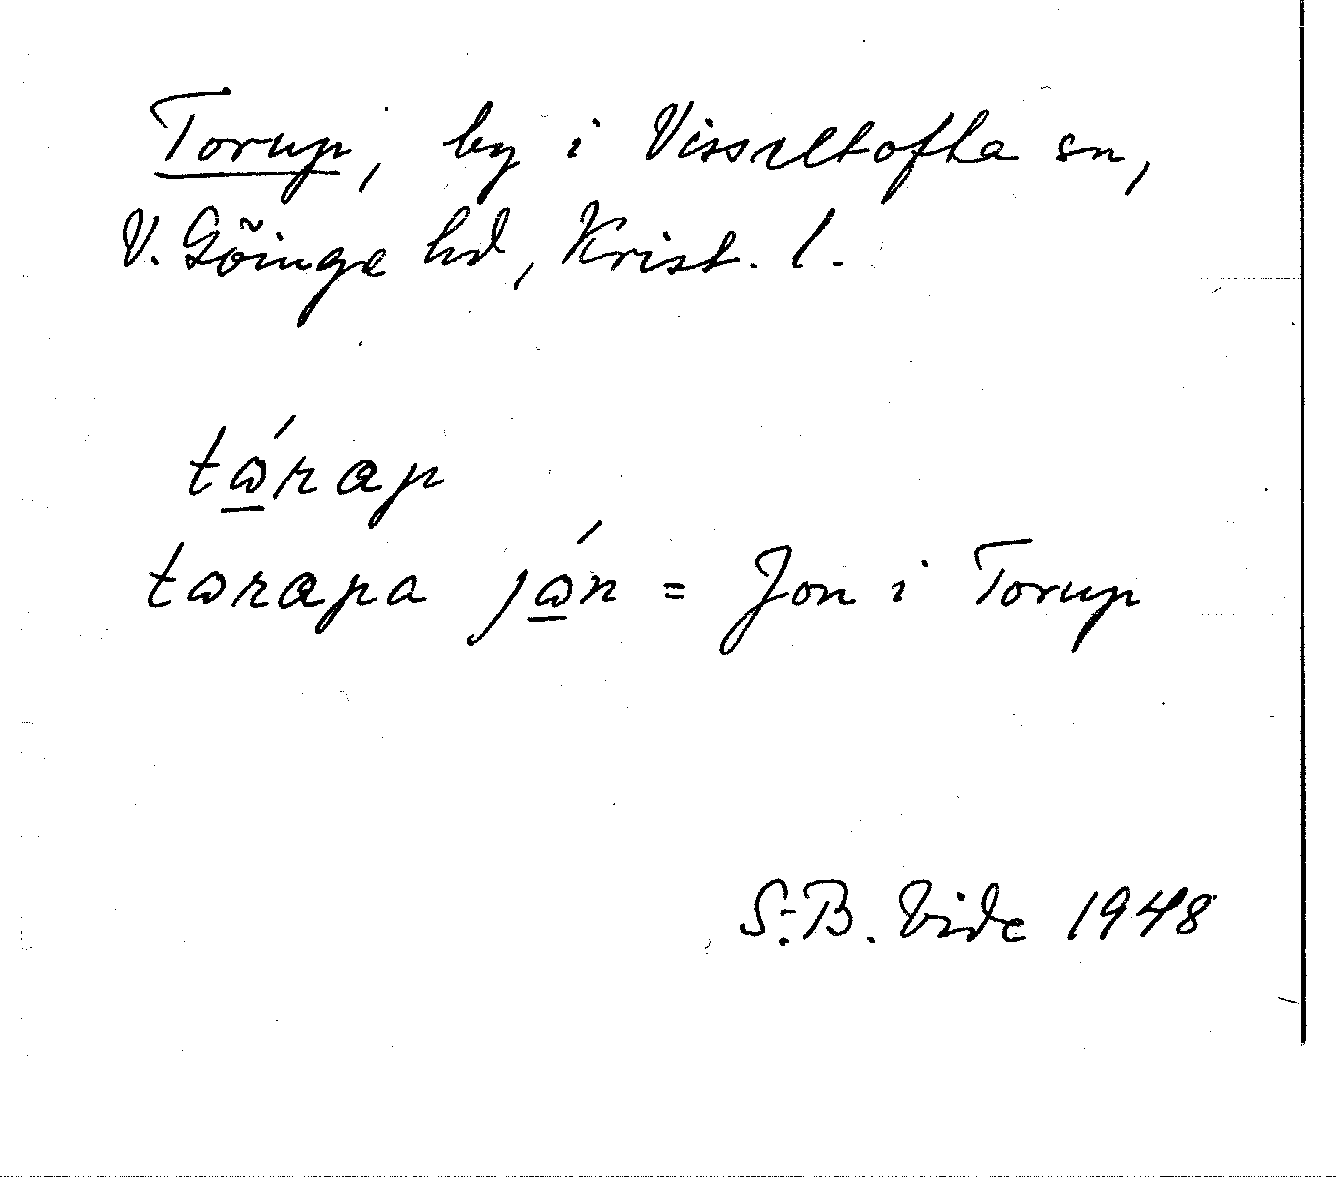 Torup, by i Visseltofta sn,
V. Göinge hd, Krist. l.
tώ̲rap
tωrapa jώ̲n = Jon i Torup
S.-B. Vide 1948